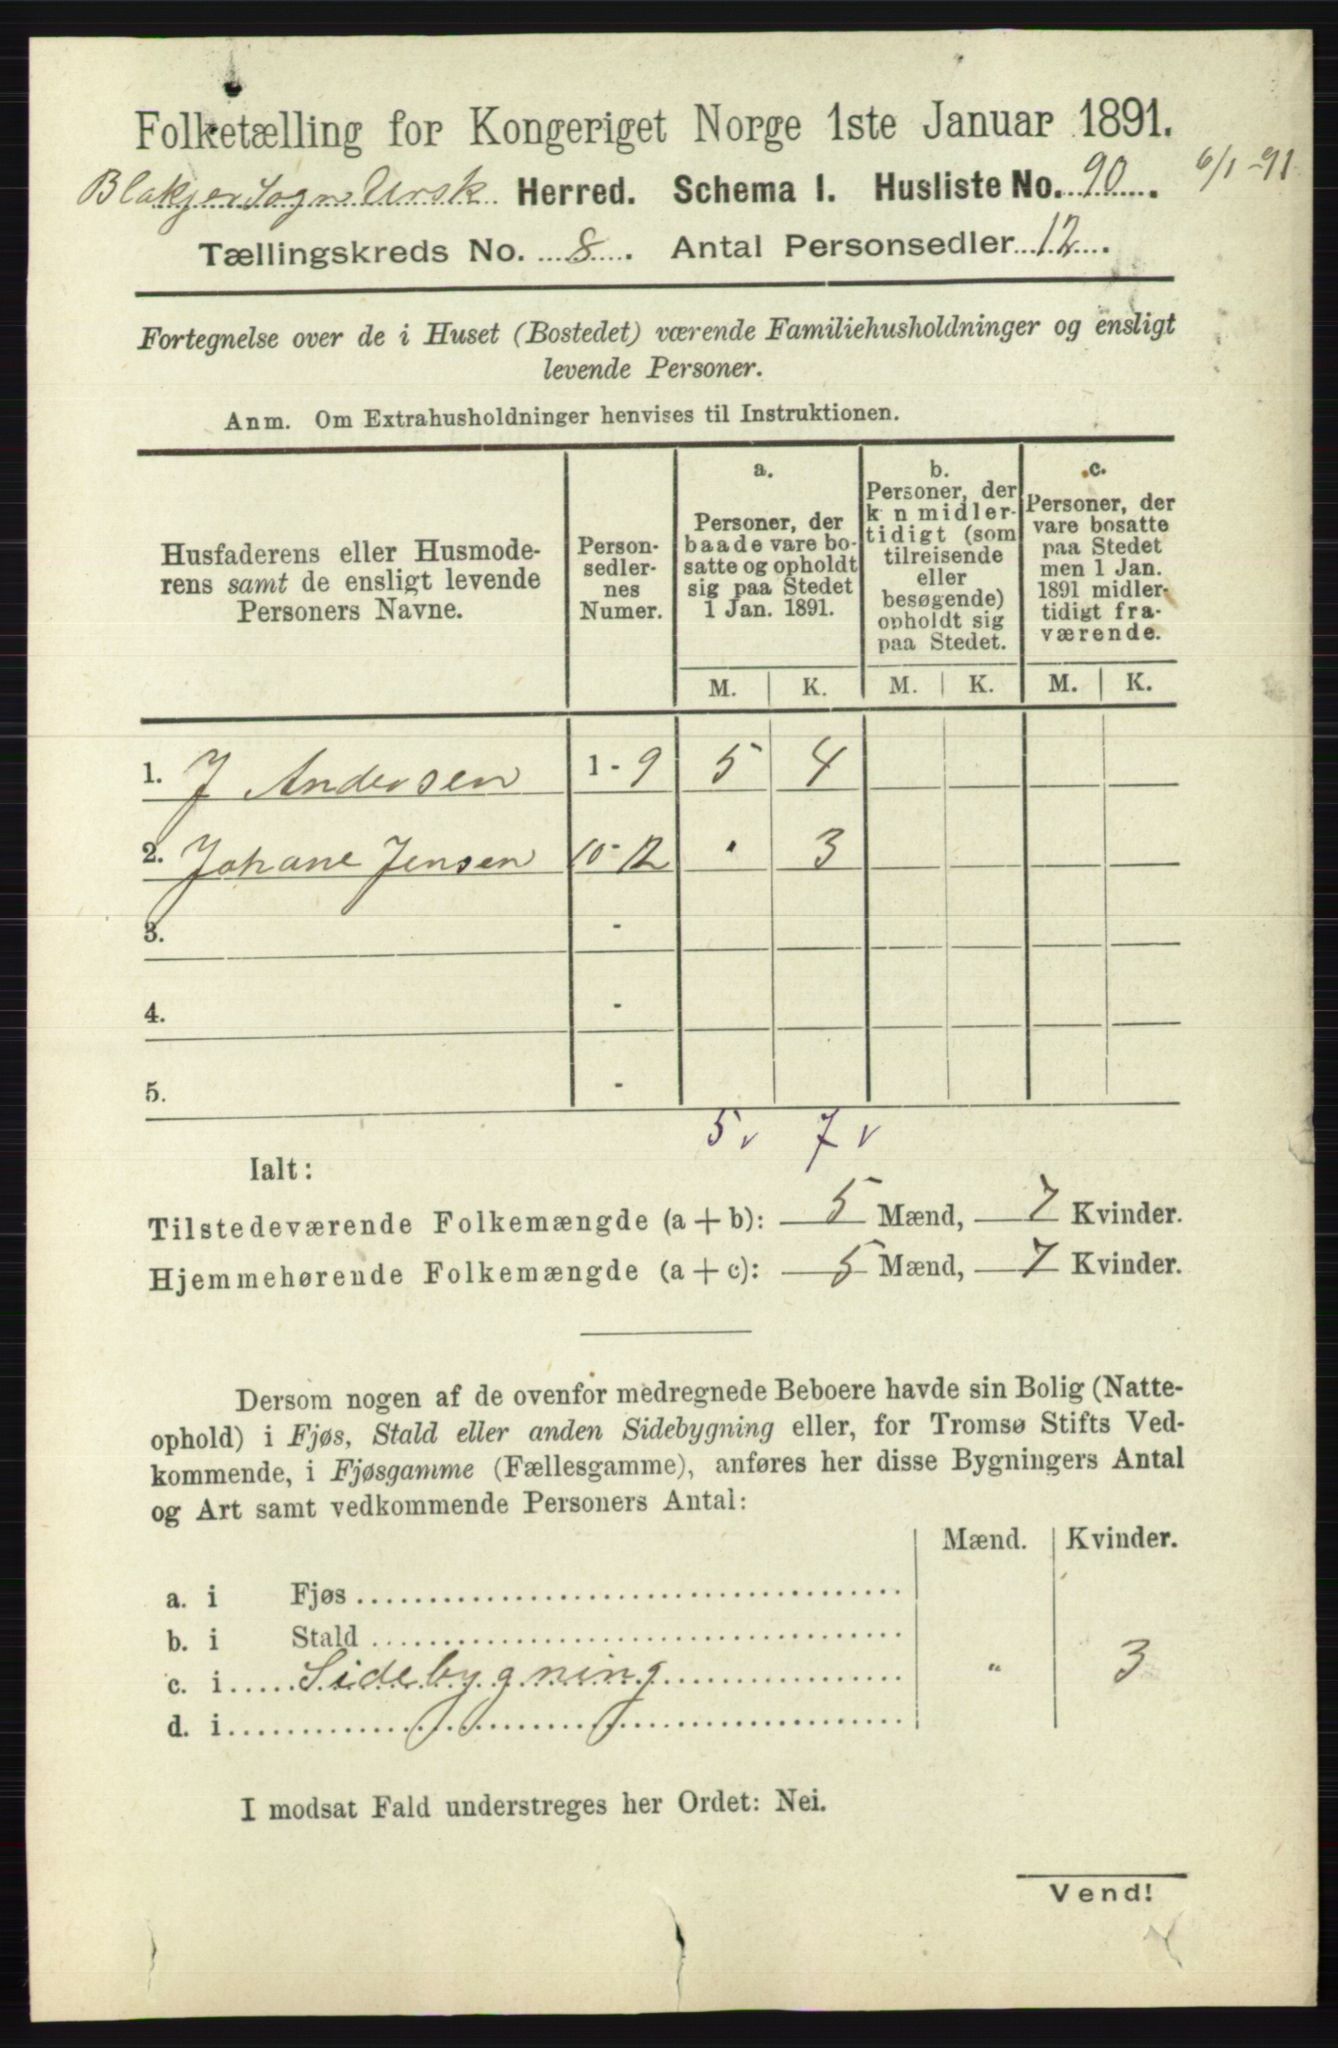 Folketælling for Kongeriget Norge 1ste Januar 1891.
Blakjer Sogn Ursk Herred. Schema 1. Husliste No. 90. 6/1-91
Tællingskreds No. 8. Antal Personsedler 12.
Fortegnelse over de i Huset (Bostedet) værende Familiehusholdninger og ensligt
levende Personer.
Anm. Om Extrahusholdninger henvises til Instruktionen.
Husfaderens eller Husmode-
rens samt de ensligt levende
Personers Navne.
Person-
sedler-
nes
Numer.
a.
Personer, der
baade vare bo-
satte og opholdt
sig paa Stedet
1 Jan. 1891.
b.
Personer, der
k n midler-
tidigt (som
tilreisende
eller
besøgende)
opholdt sig
paa Stedet.
c.
Personer, der
vare bosatte
paa Stedet
men 1 Jan.
1891 midler-
tidigt fra-
værende.
M. K. M. K. M. K.
1. J Andersen 1-9 5 4
2. Johane Jensen 10-12 " 3
3. -
4. -
5. -
5 v 7 v
Ialt:
Tilstedeværende Folkemængde (a + b): 5 Mænd, 7 Kvinder.
Hjemmehørende Folkemængde (a + c): 5 Mænd, 7 Kvinder.
Dersom nogen af de ovenfor medregnede Beboere havde sin Bolig (Natte-
ophold) i Fjøs, Stald eller anden Sidebygning eller, for Tromsø Stifts Ved-
kommende, i Fjøsgamme (Fællesgamme), anføres her disse Bygningers Antal
og Art samt vedkommende Personers Antal:
Mænd. Kvinder.
a. i Fjøs
b. i Stald
c. i Sidebygning " 3
d. i
I modsat Fald understreges her Ordet: Nei.
Vend!